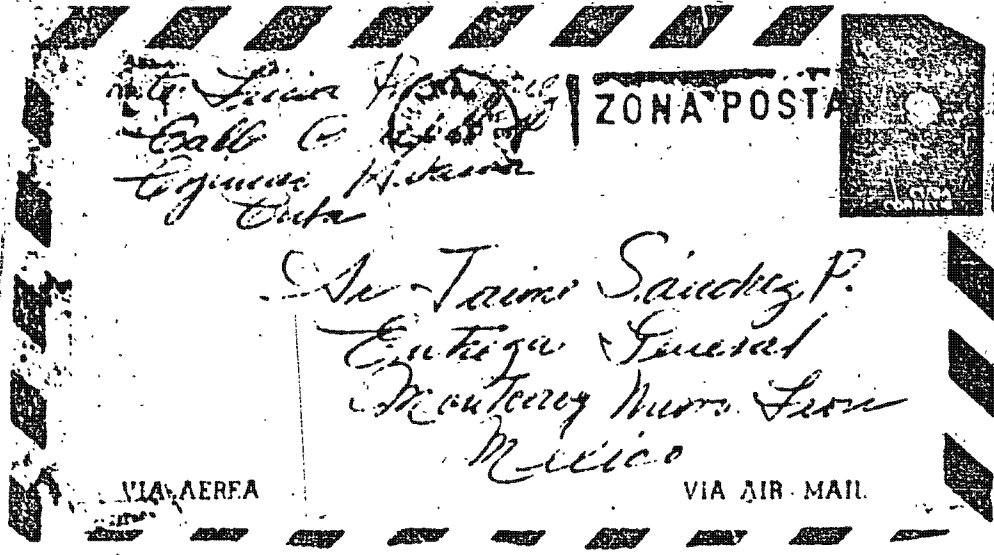 Rte. Lucia
Calle C
Cojimar Habana
Cuba
ZONA POSTA
CUBA
CORREOS
Sr Jaime Sánchez P.
Entrega General
Monterrey Nuevo Leon
Mexico
VIA AEREA
VIA AIR MAIL